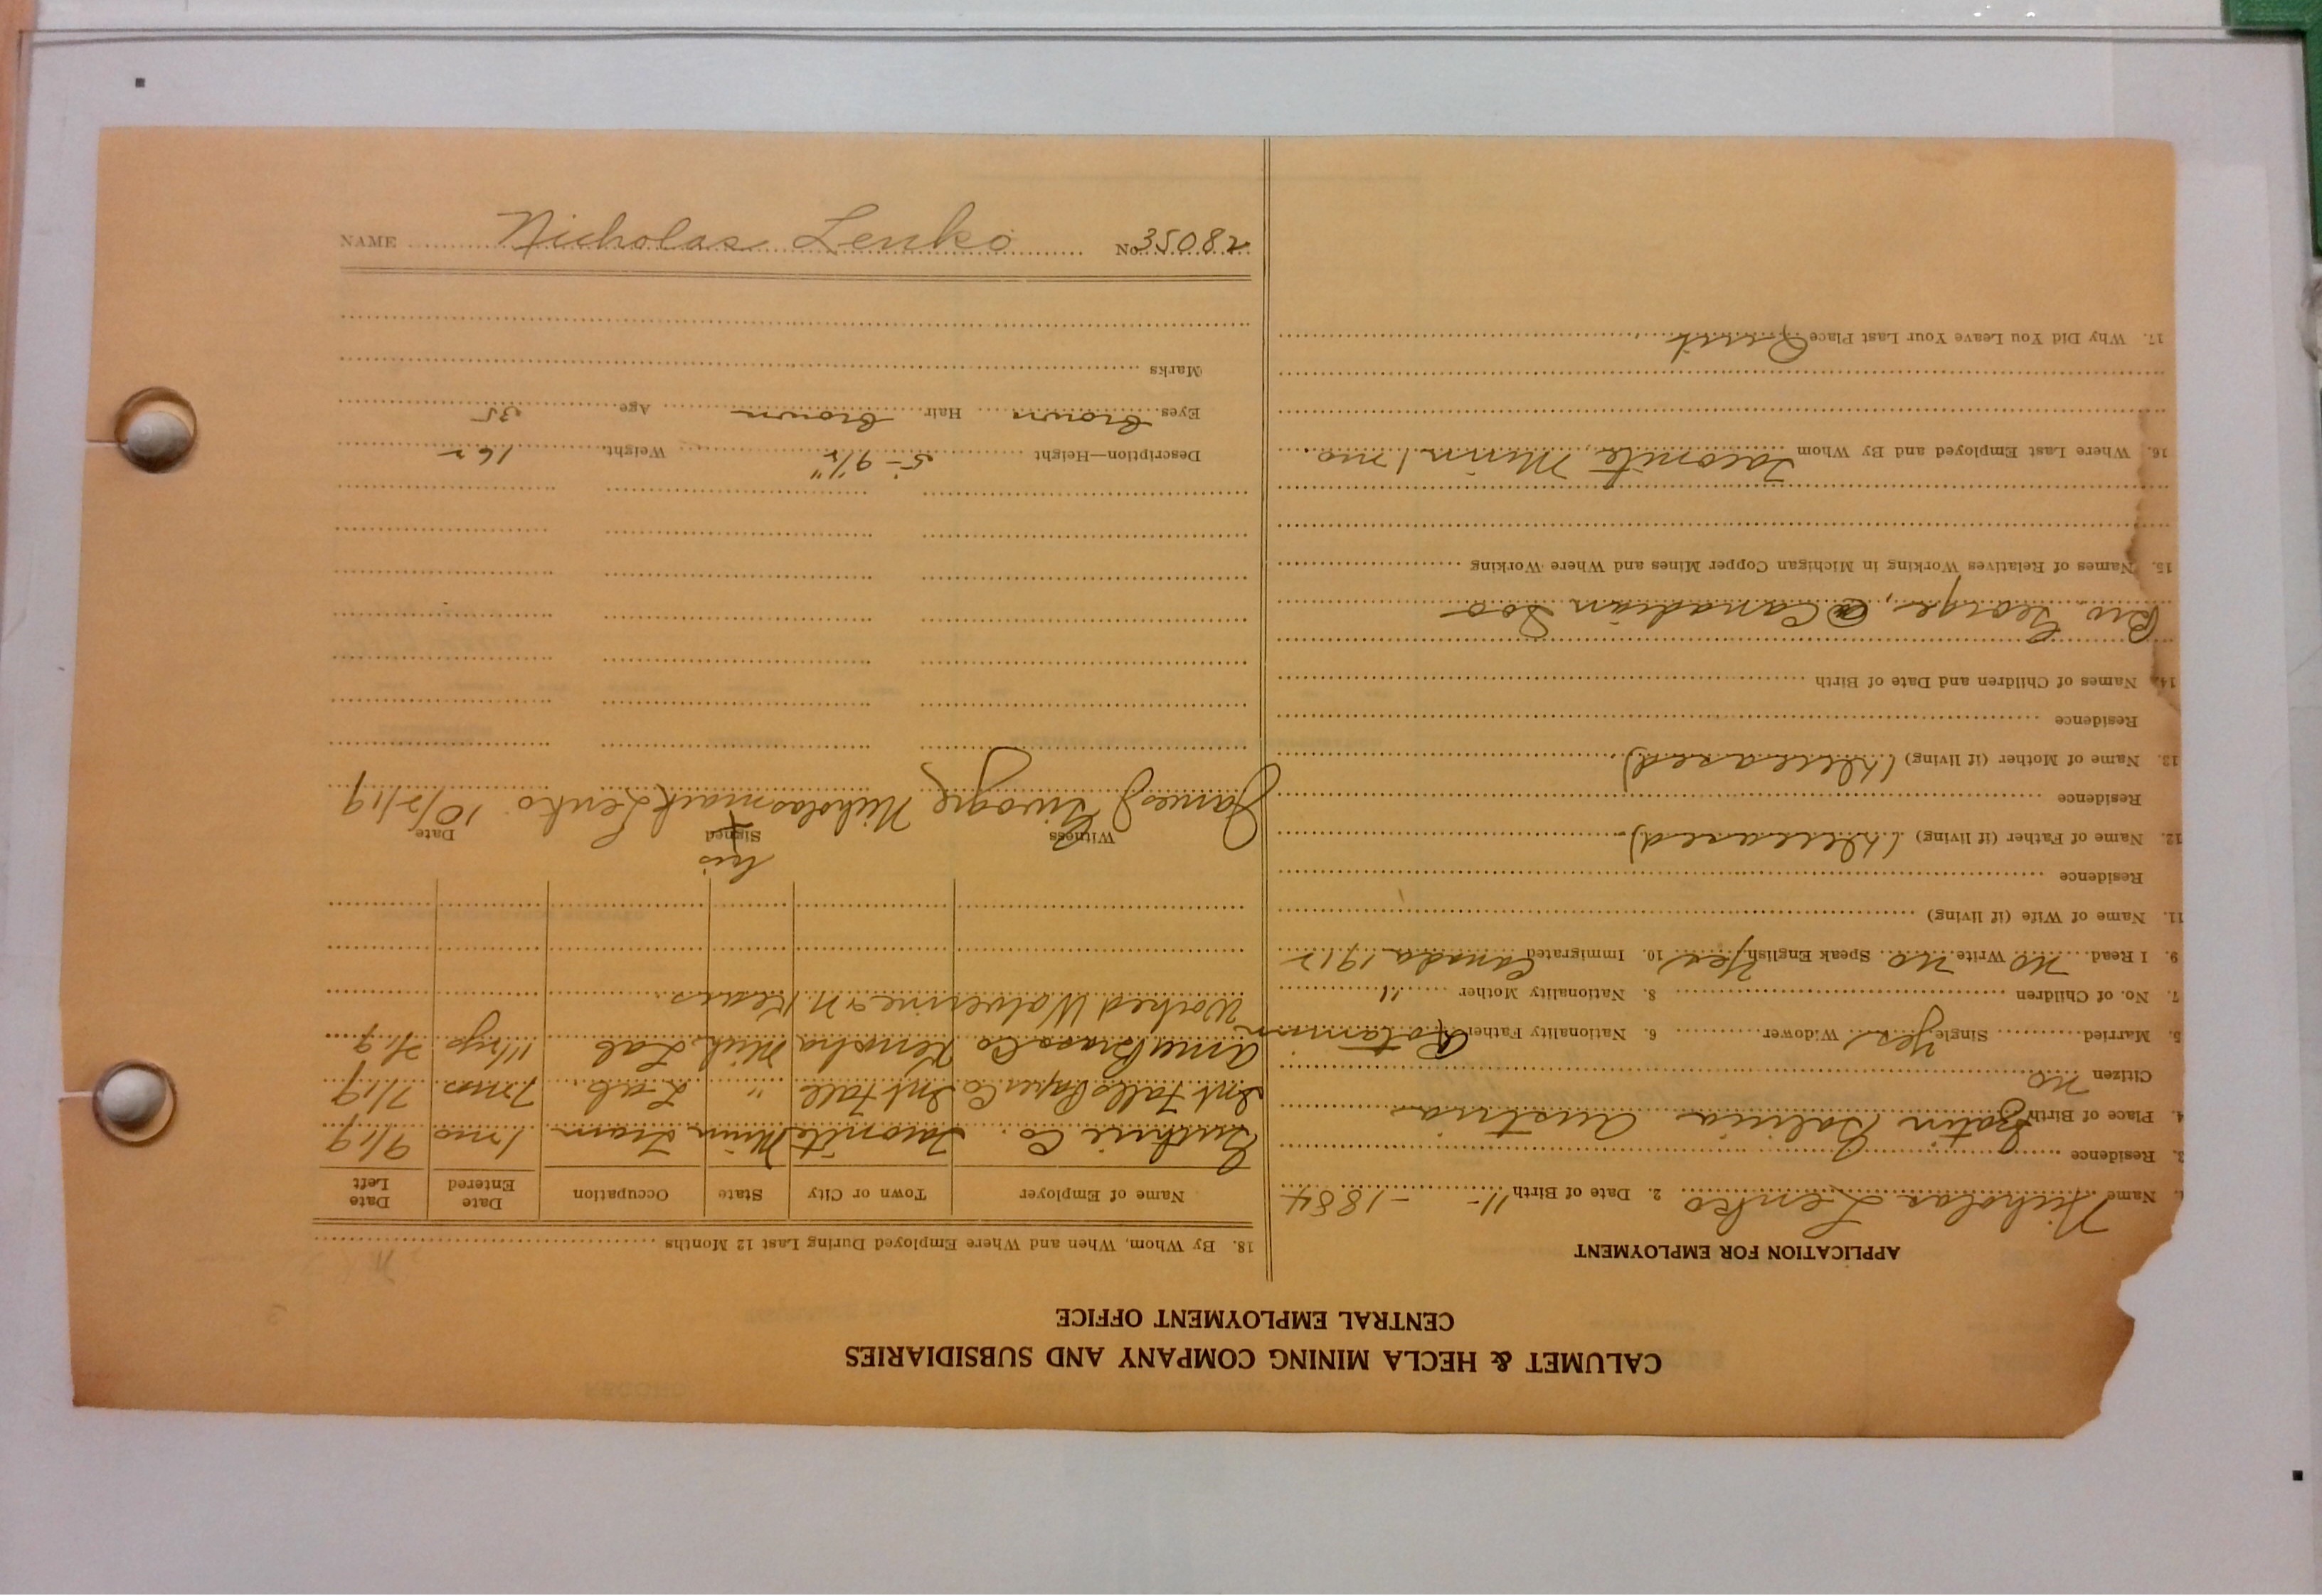 CALUMET & HECLA MINING COMPANY AND SUBSIDIARIES
CENTRAL EMPLOYMENT OFFICE
APPLICATION FOR EMPLOYMENT
1. Name Nicholas Lenko 2. Date of Birth 11 - - 1884
3. Residence
4. Place of Birth Galicia Austria
Citizen no
5. Married Single Yes Widower 6. Nationality Father
7. No. of Children 8. Nationality Mother "
9. I Read no Write no Speak English Yes 10. Immigrated Canada 1912
11. Name of Wife (if living)
Residence
12. Name of Father (if living) (deceased)
Residence
13. Name of Mother (if living) (deceased)
Residence
14. Names of Children and Date of Birth
Bro. George, @ Canadian Soo
15. Names of Relatives Working in Michigan Copper Mines and Where Working
16. Where Last Employed and By Whom Taconite, Minn 1 mo.
17. Why Did You Leave Your Last Place Quit
18. By Whom, When and Where Employed During Last 12 Months
Name of Employer Town or City State Occupation Date Entered Date Left
Guthrie Co. Taconite Minn Tram 1 mo 9/19
Int Falls Paper Co Int Fall " Lab. 7 mos 7/19
Amer Brass Co Kenosha Lab
Worked Wolverine & N. Kears.
his
Witness Signed Date
James Nicholas mark Lenko 10/2/19
X
Description—Height 5-9½" Weight 162
Eyes Brown Hair Brown Age 35
Marks
NAME Nicholas Lenko No. 35082